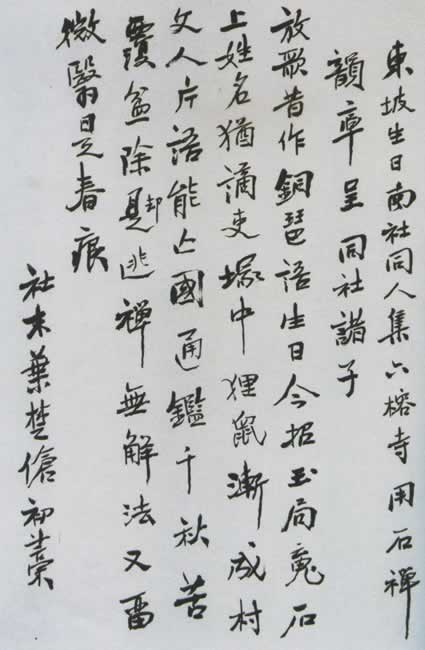 東坡生日南社同人集六榕寺用石禪
韻率呈同社諸子
放歌昔作銅琶語生日今招玉局魂石
上姓名猶謫吏塚中狸鼠漸成村
文人片語能亡國通鑑千秋苦
覆盆除是却逃禪無解法又留
微翳是春痕
社末葉楚傖初藁